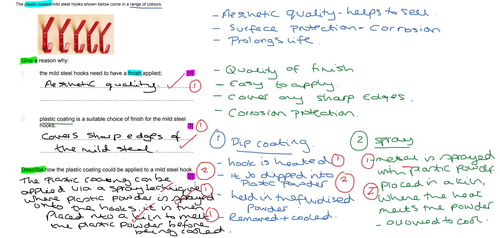 The plastic coated mild steel hooks shown below come in a range of colours.
Give a reason why:
the mild steel hooks need to have a finish applied; [1]
Aesthetic quality. 1
plastic coating is a suitable choice of finish for the mild steel
hooks. [1] 1
Covers sharp edges of
the mild steel.
Describe how the plastic coating could be applied to a mild steel hook. 2
The plastic coating can be
applied via a spray technique
where plastic powder is sprayed 1
onto the hooks, it is then
placed into a kiln to melt 1
the plastic powder before
being cooled.
- Aesthetic quality - helps to sell
- Surface protection - Corrosion
- Prolongs life.
- Quality of finish
- Easy to apply.
- Cover any sharp edges.
- Corrosion protection.
1 Dip coating
- hook is heated 1
- It is dipped into
plastic powder 2
- held in the fluidised
powder.
- Removed + cooled.
2 Spray
1 - metal is sprayed
with plastic powder
2 placed in a kiln,
where the heat
melts the powder
- allowed to cool